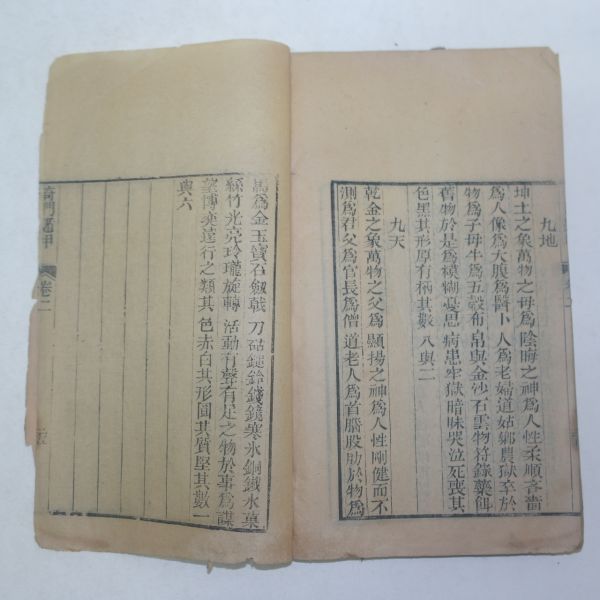 九地
坤土之象萬物之母為陰晦之神為人性柔順吝嗇
為人像為大腹為醫卜人為老婦道姑鄉農獄卒於
物為子母牛為五穀布帛與金沙石雲物符籙藥餌
舊物於是為模糊憂思病患牢獄暗昧哭泣死喪其
色黑其形原有柄其數八與二
九天
乾金之象萬物之父為顯揚之神為人性剛健而不
測為君父為官長為僧道老人為首膺股肋於物為
馬為金玉寶石劔戟刀砧鎚鈴錢鏡寒氷銅鐵水菓
絲竹光亮玲瓏旋轉活動有聲有足之物於事為謀
望博奕遠行之類其色赤白其形圓其質堅其數一
與六
奇門遁甲
卷二